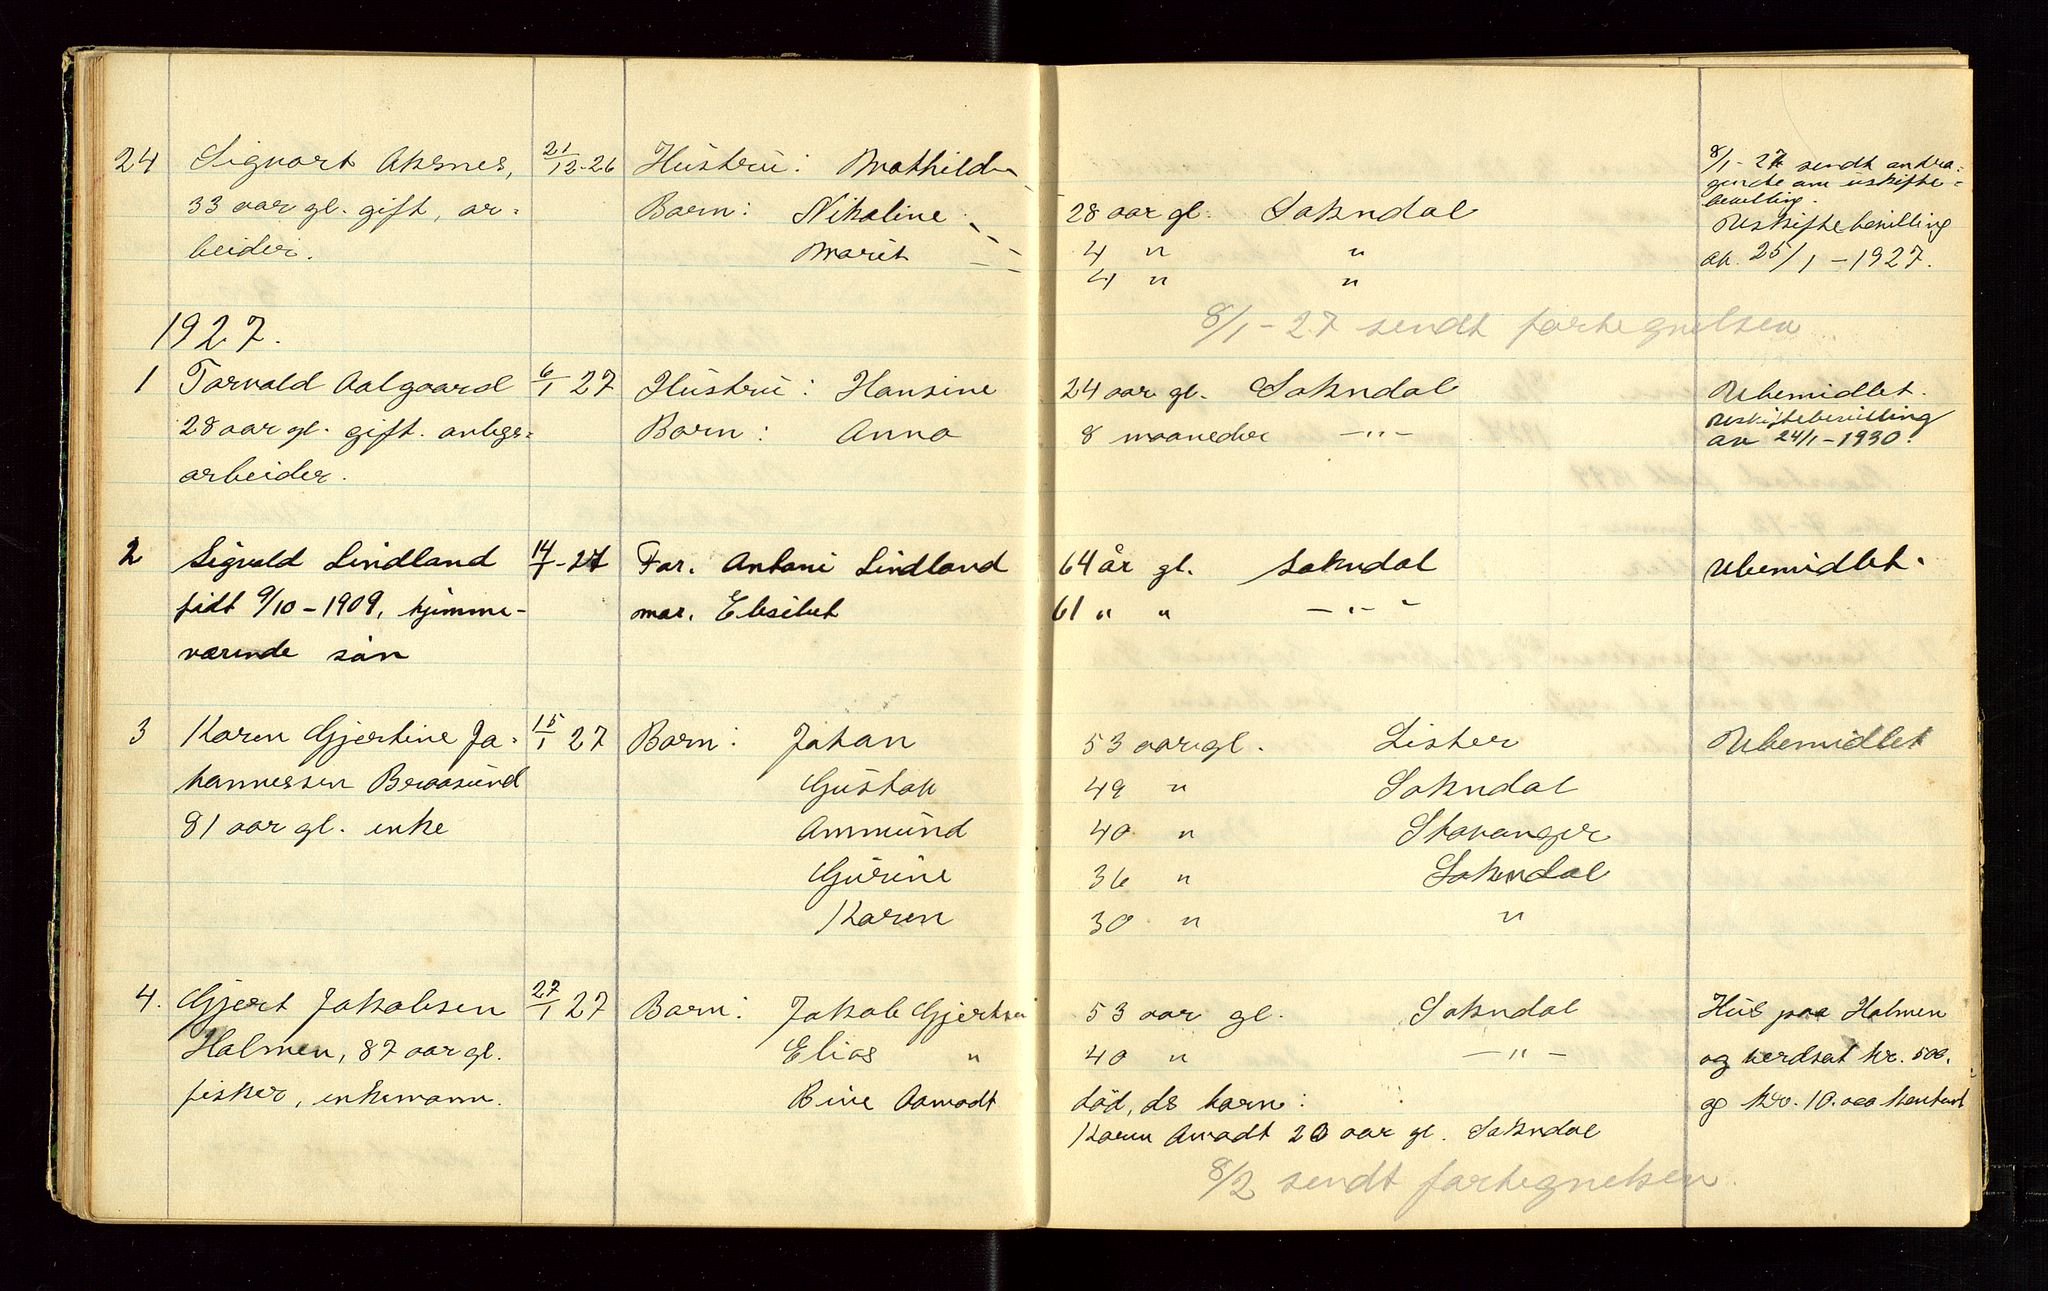 24 Sigvart Aksnes, 21/12-26 Hustru: Mathilde 8/1-27 sendt andra-
gende om uskifte-
bevilling.
33 aar gl. gift, ar- Barn: Nikoline 28 aar gl. Sokndal Uskiftebevilling
beider. Marit 4 " " av. 25/1-1927.
4 " "
8/1-27 sendt fortegnelsen
1927.
1 Torvald Aalgaard 6/1 27 Hustru: Hansine 24 aar gl. Sokndal Ubemidlet.
28 aar gl. gift. anlegs- Barn: Anna 8 maaneder -"- Uskiftebevilling
av 24/1-1930.
arbeider.
2 Sigvald Lindland 14/1-27 Far. Antoni Lindland 64 år gl. Sokndal Ubemidlet.
født 9/10-1909, hjemme- mor. Elisabet 61 " " -"-
værende søn
3 Karen Gjertine Jo- 15/1 27 Barn: Johan 53 aar gl. Lister Ubemidlet
hannessen Braasund Gustav 49 " Sokndal
81 aar gl. enke Ammund 40 " Stavanger
Gurine 36 " Sokndal
Karen 30 " "
4. Gjert Jakobsen 27/1 27 Barn: Jakob Gjertsen 53 aar gl. Sokndal Hus paa Holmen
Holmen, 87 aar gl. Elias " 40 " -"- og verdsat kr. 500.
fisker, enkemann. Bine Aamodt død, ds barn: og kr. 10.000 kontant
Karen Amodt 20 aar gl. Sokndal
8/2 sendt fortegnelsen.